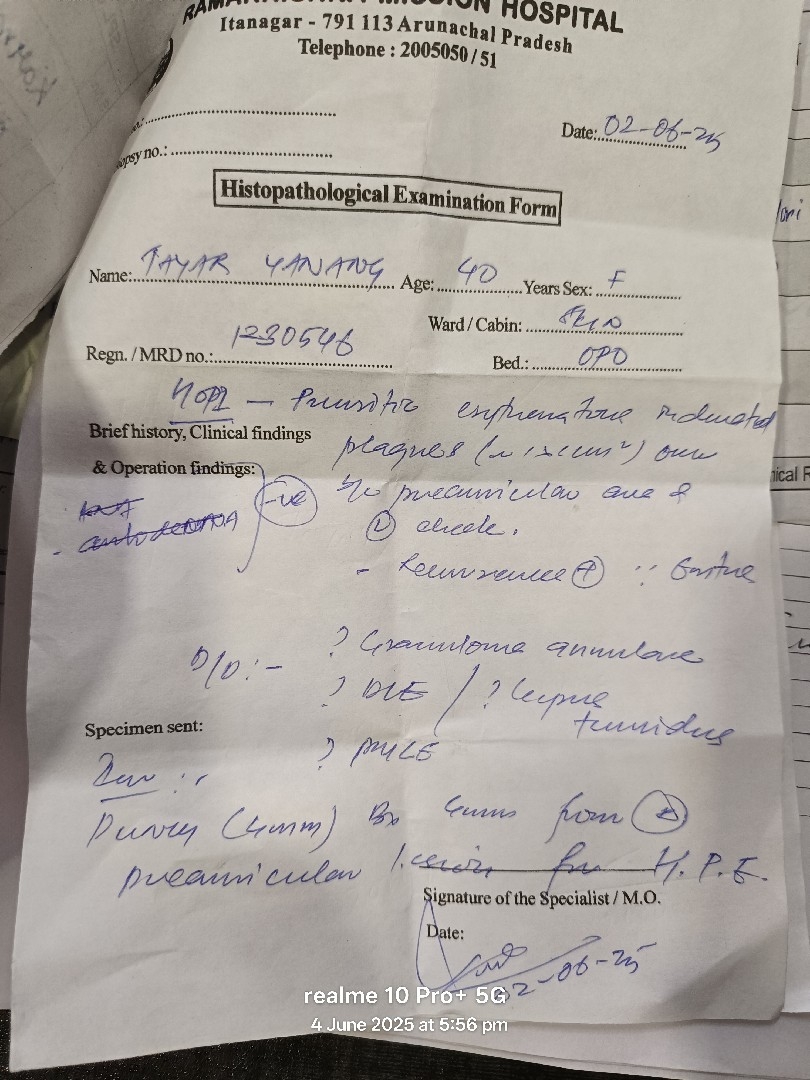 MISSION HOSPITAL
Itanagar - 791 113 Arunachal Pradesh
Telephone : 2005050/51
Date: 02-06-25
opsy no.:
Histopathological Examination Form
Name: TAYAR YANANG Age: 40 Years Sex: F
Ward/Cabin: SKIN
Regn./MRD no.: 1230546 Bed.: OPD
HOPI - Pruritic erythematous indurated
Brief history, Clinical findings
plaques over
& Operation findings:
-ve
preauricular area &
L cheek.
- Recurrence +
D/D :- ? Granuloma annulare
? DLE / ? lupus
tumidus
Specimen sent:
? PMLE
Punch (4mm) Bx from
preauricular lesion for H.P.E.
Signature of the Specialist / M.O.
Date:
02-06-25
realme 10 Pro+ 5G
4 June 2025 at 5:56 pm